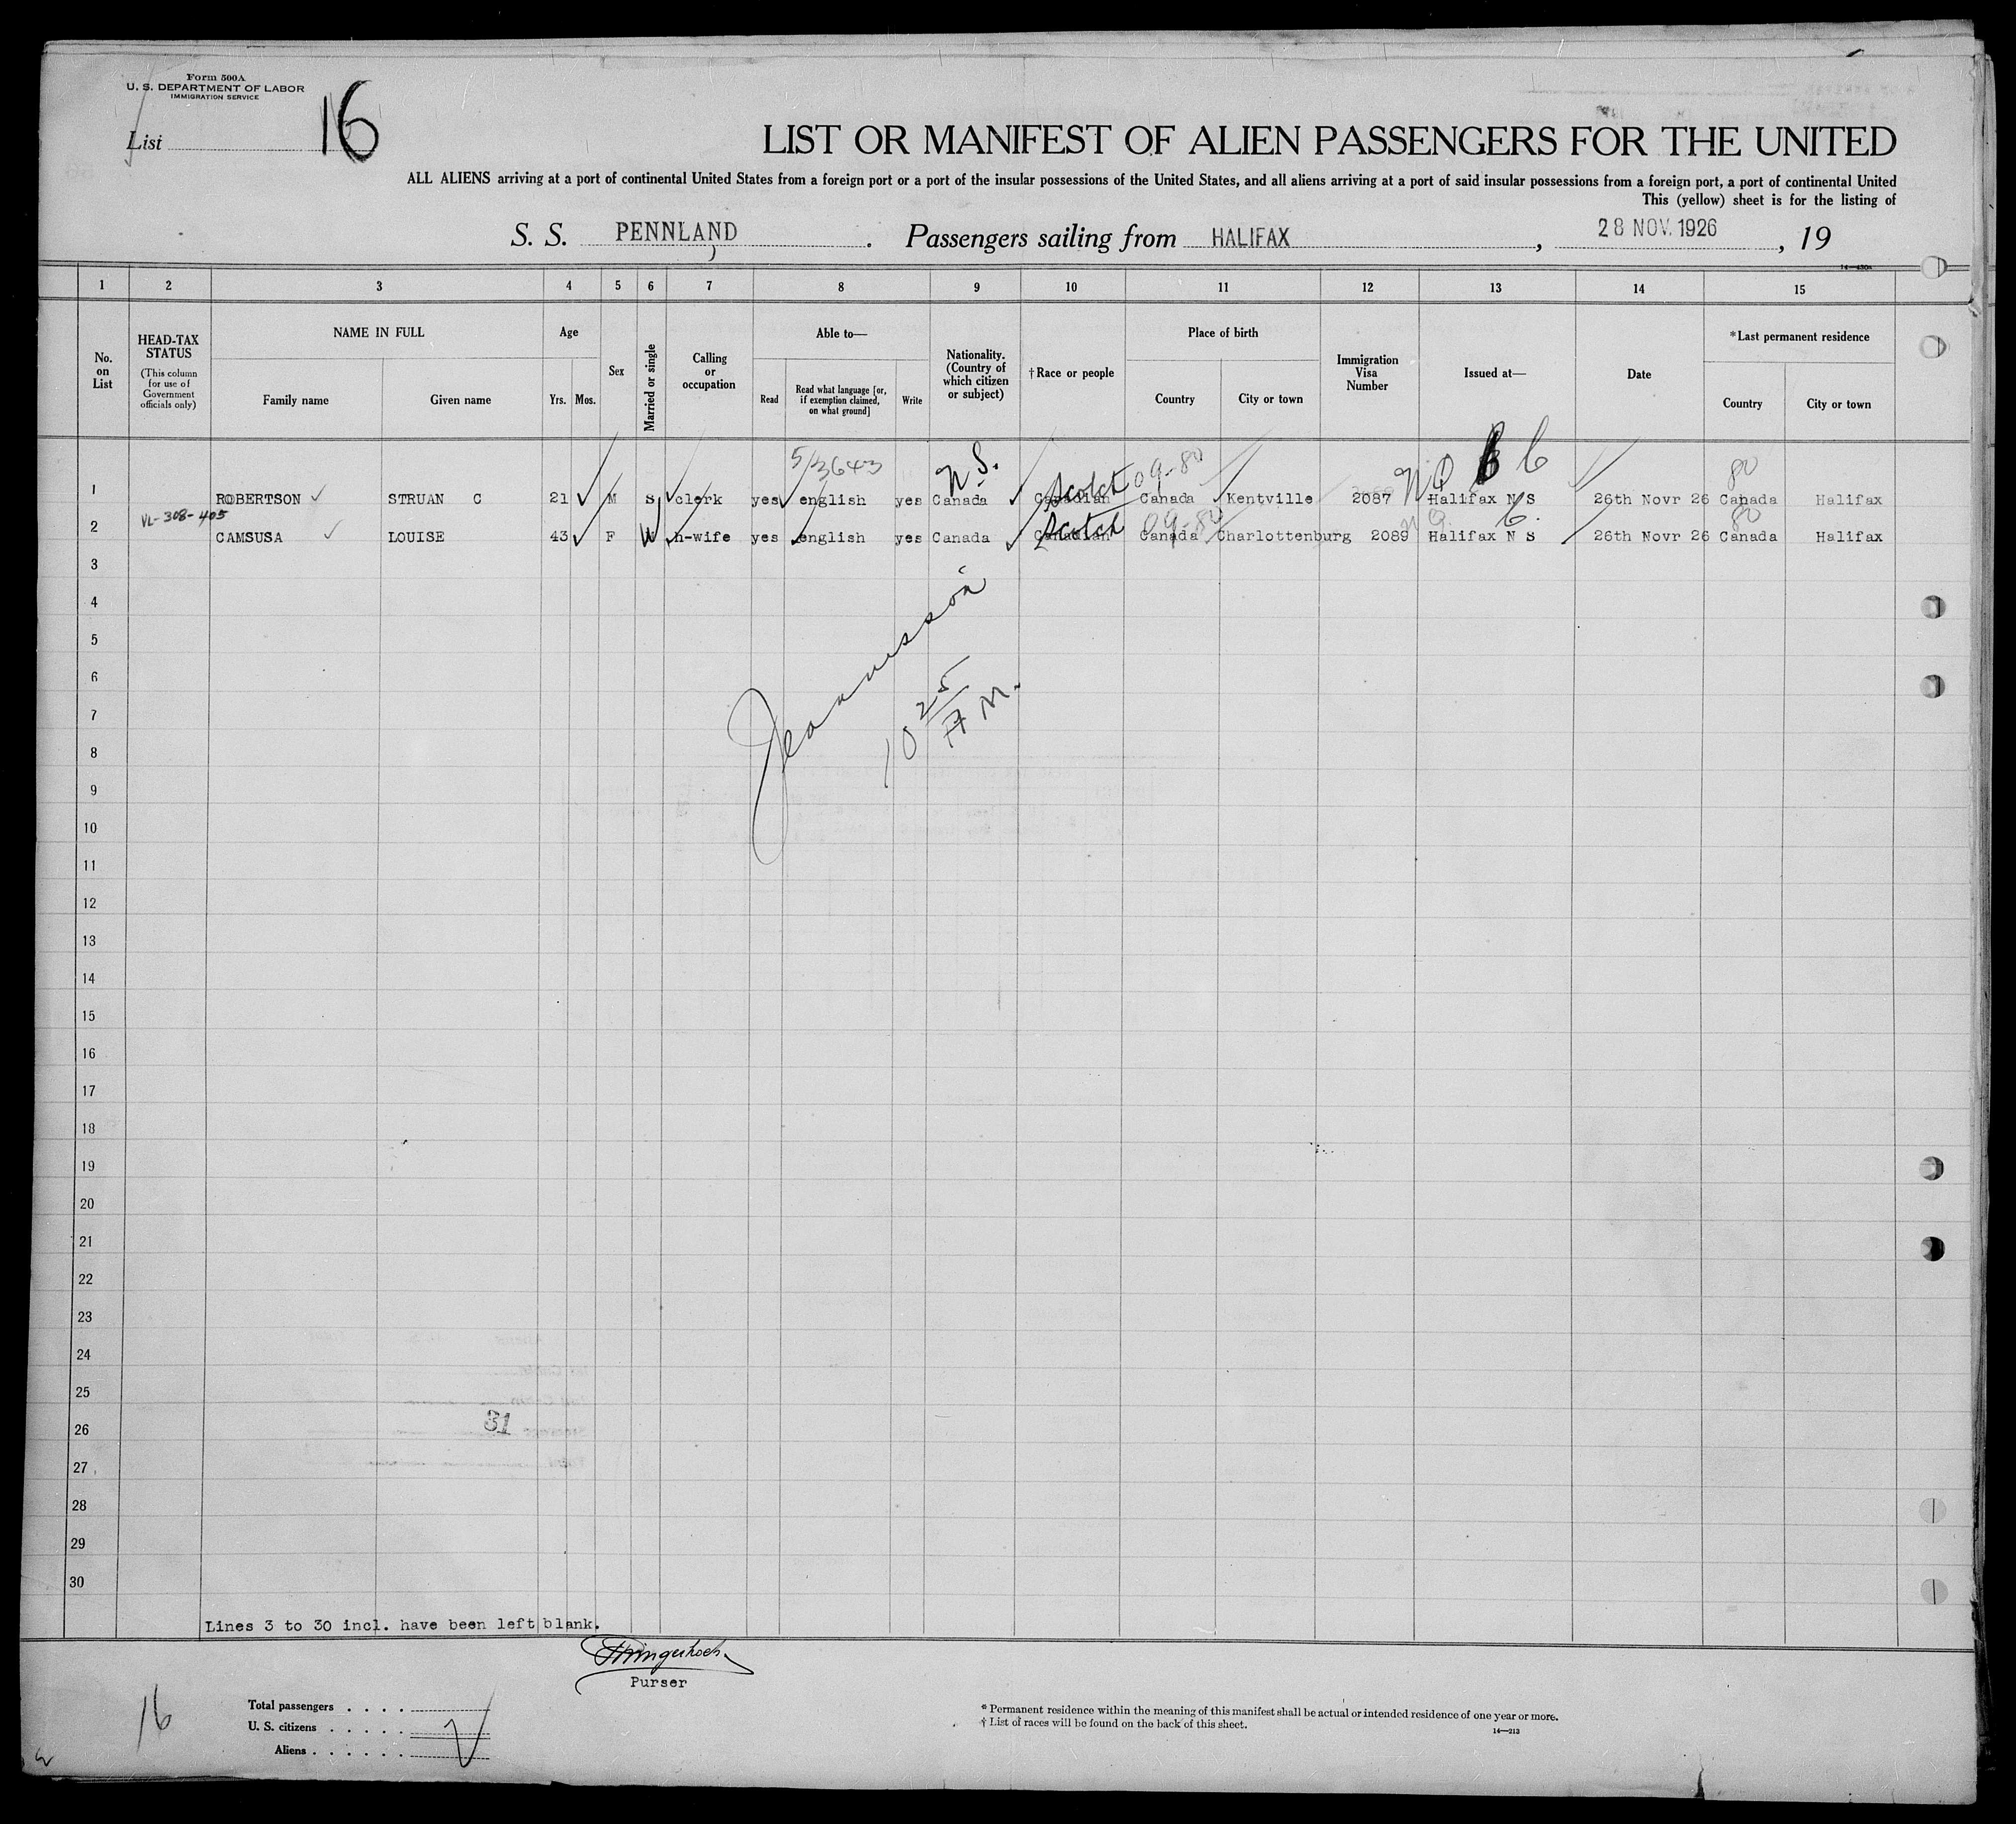 Form 500A
U. S. DEPARTMENT OF LABOR
IMMIGRATION SERVICE
List 16
LIST OR MANIFEST OF ALIEN PASSENGERS FOR THE UNITED
ALL ALIENS arriving at a port of continental United States from a foreign port or a port of the insular possessions of the United States, and all aliens arriving at a port of said insular possessions from a foreign port, a port of continental United
This (yellow) sheet is for the listing of
S. S. PENNLAND . Passengers sailing from HALIFAX , 28 NOV. 1926 , 19
14—430a
1 2 3 4 5 6 7 8 9 10 11 12 13 14 15
No. on List
HEAD-TAX STATUS
(This column for use of Government officials only)
NAME IN FULL
Family name Given name
Age
Yrs. Mos.
Sex
Married or single
Calling or occupation
Able to—
Read
Read what language [or, if exemption claimed, on what ground]
Write
Nationality. (Country of which citizen or subject)
†Race or people
Place of birth
Country City or town
Immigration Visa Number
Issued at—
Date
*Last permanent residence
Country City or town
5/3643 N.S. 09-80 80
1 ROBERTSON STRUAN C 21 M S clerk yes english yes Canada Canadian Scotch Canada Kentville 2087 Halifax N S 26th Novr 26 Canada Halifax
VL-308-405 09-80 80
2 CAMSUSA LOUISE 43 F h-wife yes english yes Canada Canadian Scotch Canada Charlottenburg 2089 Halifax N S 26th Novr 26 Canada Halifax
3
4
5
6
7
8
9
10
11
12
13
14
15
16
17
18
19
20
21
22
23
24
25
26
27
28
29
30
10 25 A M.
31
Lines 3 to 30 incl. have been left blank.
Purser
16
Total passengers . . . .
U. S. citizens . . . . .
Aliens . . . . . .
* Permanent residence within the meaning of this manifest shall be actual or intended residence of one year or more.
† List of races will be found on the back of this sheet.
14—213